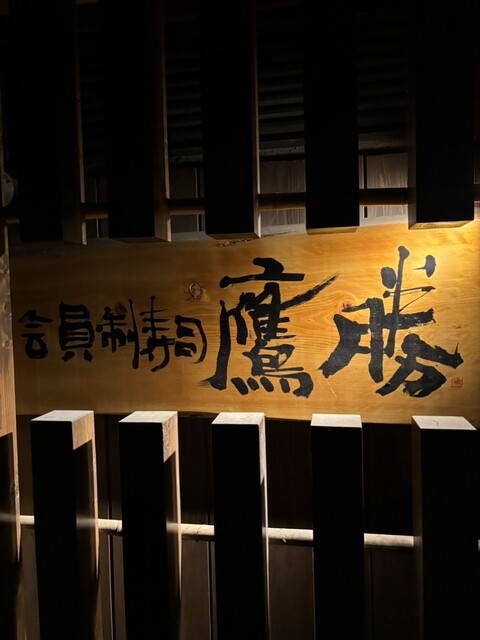 会員制寿司 鷹勝